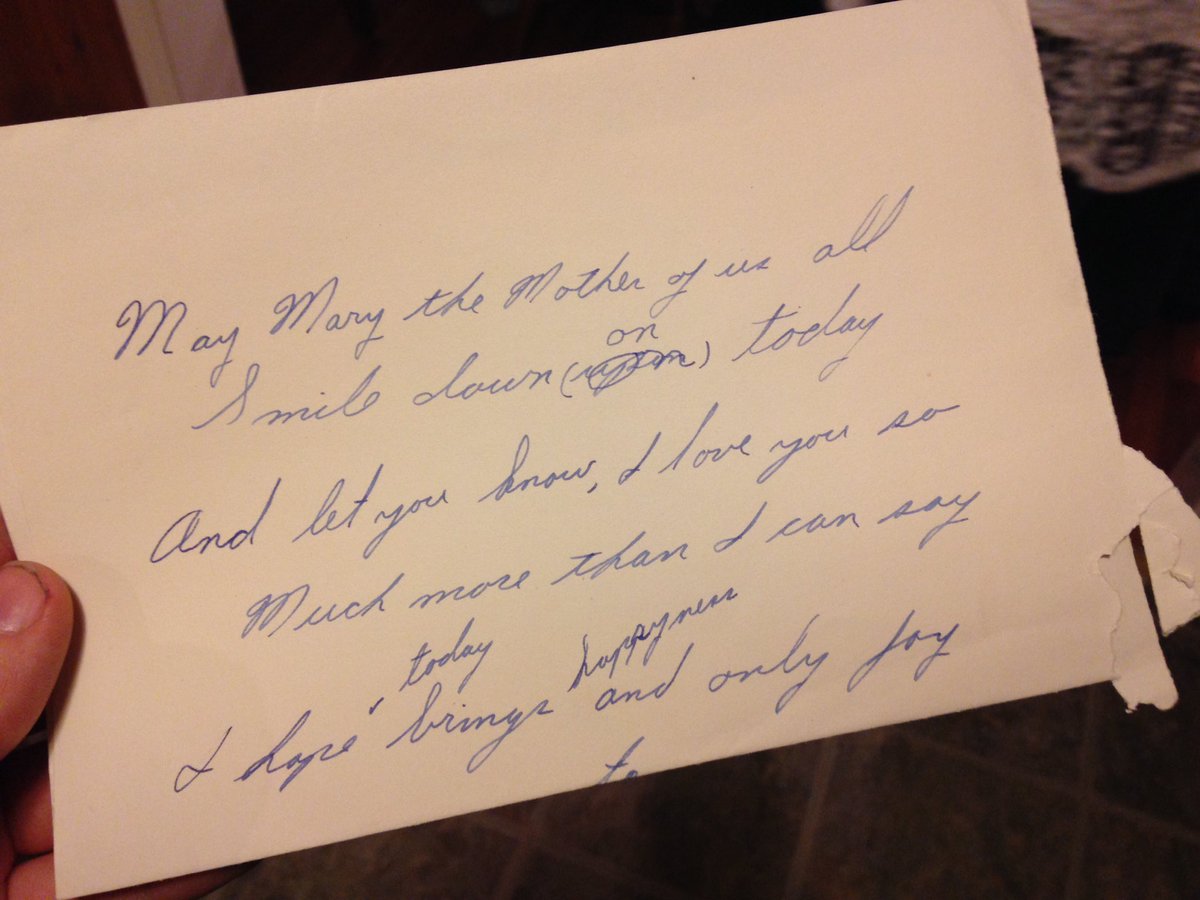 May Mary the Mother of us all
on
Smile down ( ) today
And let you know, I love you so
Much more than I can say
today happyness
I hope brings and only joy
to